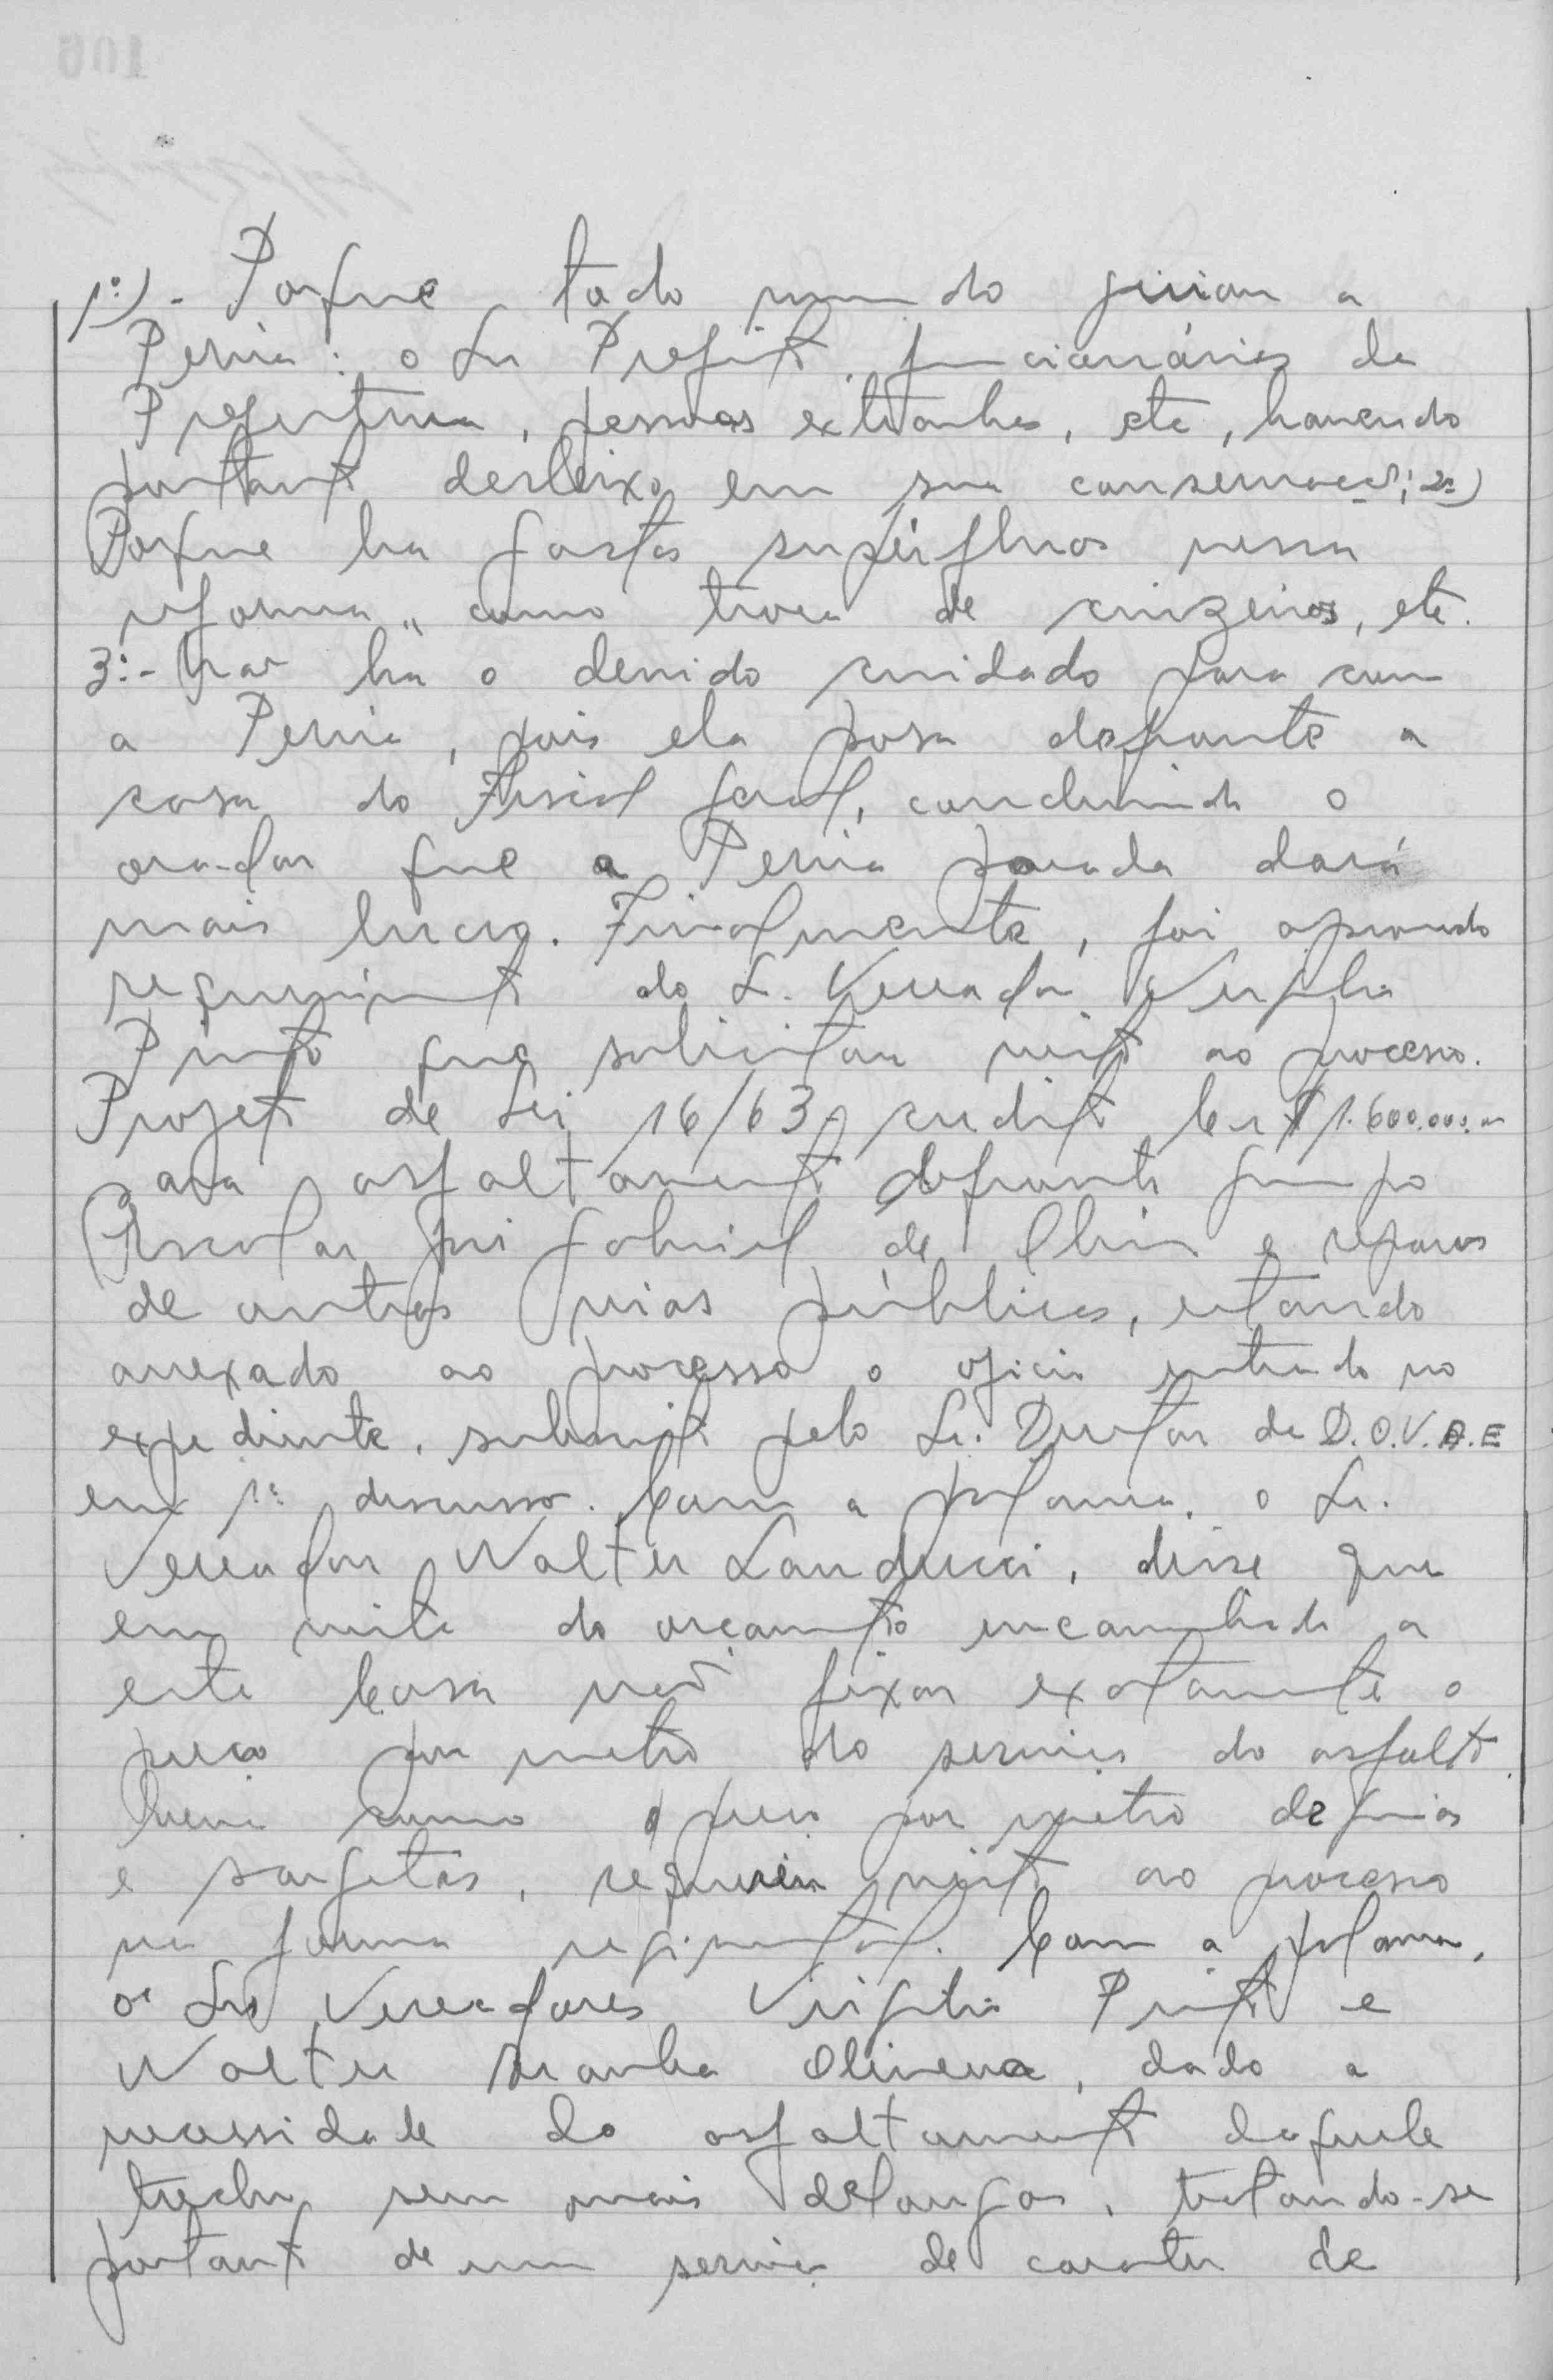 1º) - Porque todo mundo guiam a
Perua: o Sr Prefeito, funcionários da
Prefeitura, pessoas extranhas, etc, havendo
portanto desleixo em sua conservação; 2º)
Porque ha gastos supérfluos nessa
reforma, como troca de cruzeiros, etc.
3º - Não ha o devido cuidado para com
a Perua, pois ela posa defronte a
casa do Fiscal Geral, concluindo o
orador que a Perua parada dará
mais lucro. Finalmente, foi aprovado
requerimento do Sr. Vereador Virgilio
Pinto que solicitou vista ao processo.
Projeto de Lei 16/63, credito Cr$ 1.600.000,00
para asfaltamento defronte Grupo
Escolar José Gabriel de Oliveira e reparos
de outras vias públicas, estando
anexado ao processo o oficio entrado no
expediente, subscrito pelo Sr. Diretor da D.O.V.A.E
em 1ª discussão. Com a palavra, o Sr.
Vereador Walter Landucci, disse que
em vista do orçamento encaminhado a
esta Casa não fixar exatamente o
preço por metro do serviço do asfalto
bem como o preço por metro de guias
e sargetas, requeria vista ao processo
na forma regimental. Com a palavra,
os Srs Vereadores Virgilio Pinto e
Walter Oliveira, dado a
necessidade do asfaltamento daquele
trecho sem mais delongas, tratando-se
portanto de um serviço de carater de